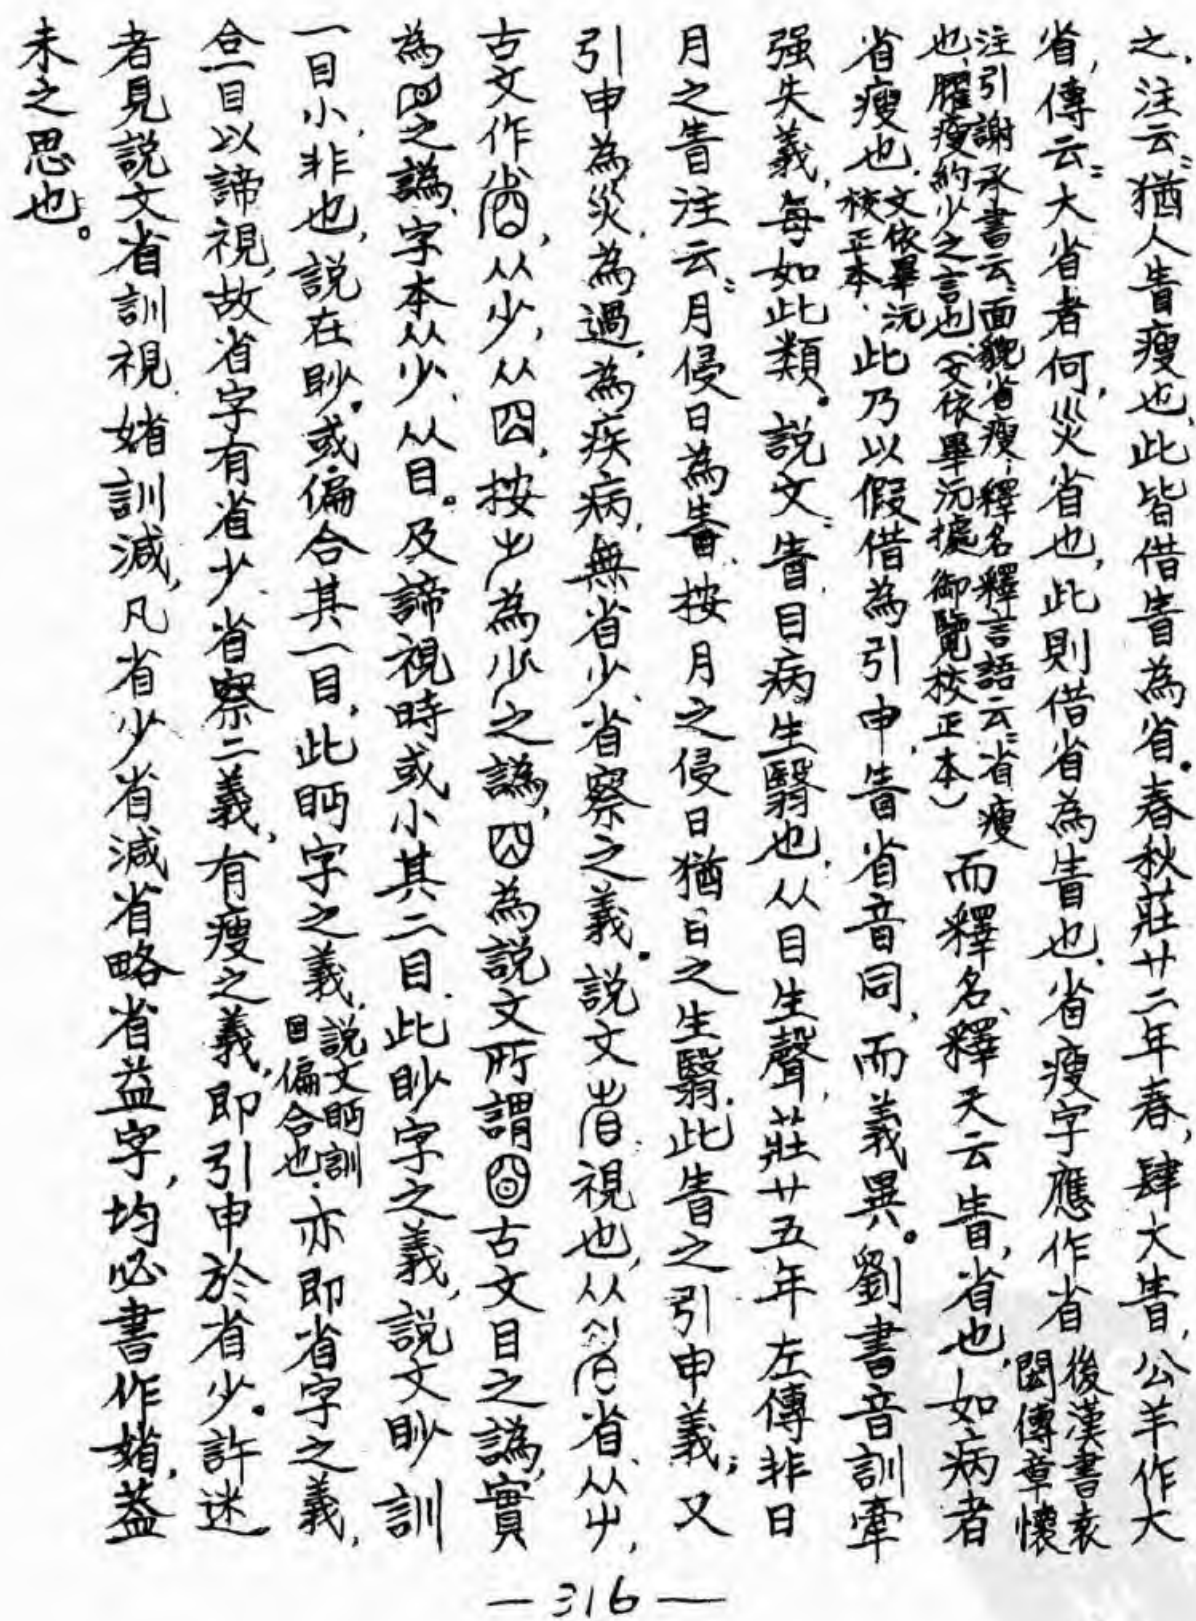 之，注云：猶人眚瘦也，此皆借眚為省。春秋莊廿二年春，肆大眚，公羊作大
省，傳云：大省者何，災省也，此則借省為眚也。省瘦字應作省後漢書袁閎傳章懷
注引謝承書云：面貌省瘦，釋名釋言語云：省瘦也，臞瘦約少之言也（文依畢沅據御覽校正本）而釋名釋天云眚，省也，如病者
省瘦也，文依畢沅校正本，此乃以假借為引申，眚省音同，而義異。劉書音訓牽
强失義，每如此類。説文：眚目病生翳也，从目生聲，莊廿五年左傳非日
月之眚注云：月侵日為眚，按月之侵日猶日之生翳，此眚之引申義；又
引申為災，為過，為疾病，無省少、省察之義。説文省視也，从眉省、从屮，
古文作𡮐，从少，从囧，按屮為少之譌，囧為説文所謂古文目之譌，實
為之譌，字本从少，从目。及諦視時或小其二目，此眇字之義，説文眇訓
一目小，非也，説在眇。或偏合其一目，此眄字之義，説文眄訓目偏合也，亦即省字之義，
合一目以諦視，故省字有省少省察二義，有瘦之義，即引申於省少。許迷
者見説文省訓視，媘訓減，凡省少省減省略省益字，均必書作媘，蓋
未之思也。
—316—